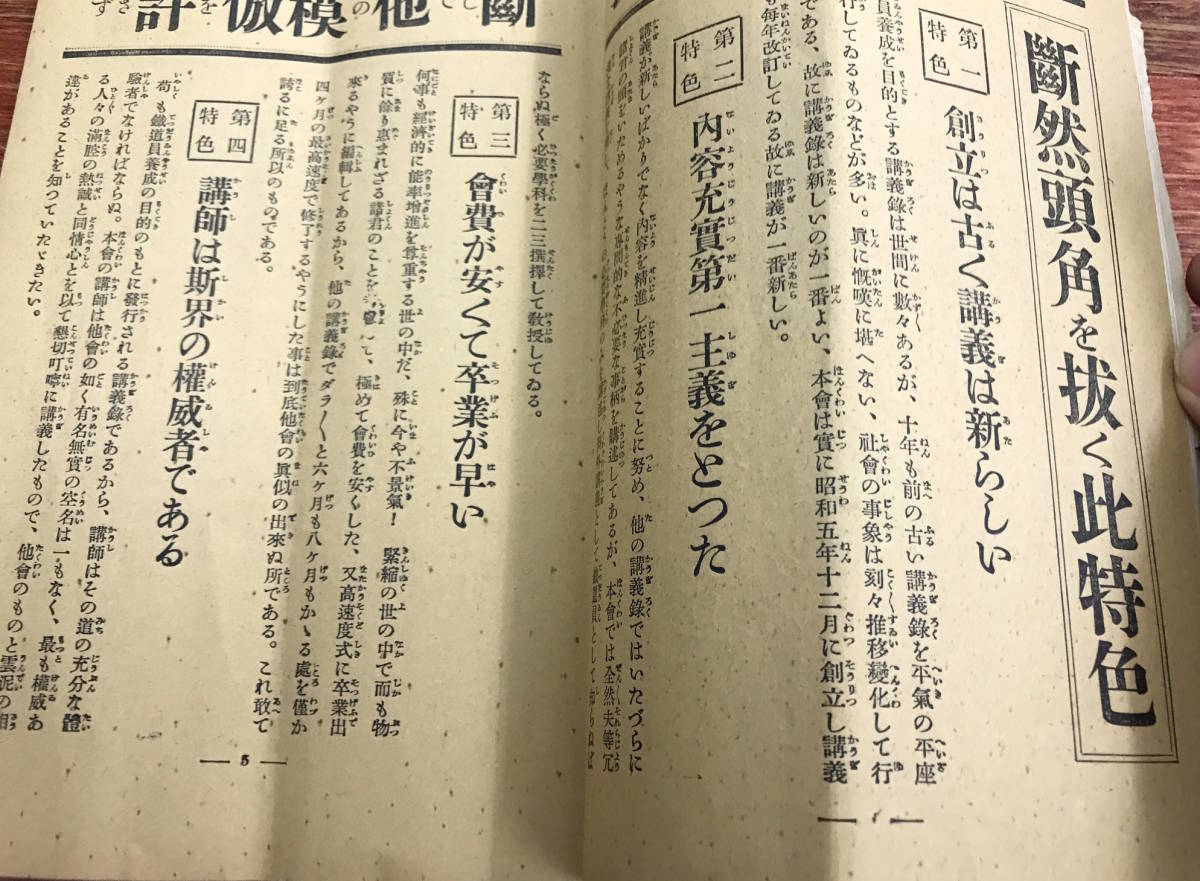 斷然頭角を拔く此特色
第一特色
創立は古く講義は新らしい
員養成を目的とする講義錄は世間に數々あるが、十年も前の古い講義錄を平氣の平座
行してゐるものなどが多い。眞に慨嘆に堪へない、社會の事象は刻々推移變化して行
である、故に講義錄は新しいのが一番よい、本會は實に昭和五年十二月に創立し講義
も每年改訂してゐる故に講義が一番新しい。
第二特色
內容充實第一主義をとつた
講義が新しいばかりでなく內容を精進し充實することに努め、他の講義錄ではいたづらに
諸君の頭をいためるやうな專門的な不必要な事柄を講述してあるが、本會では全然夫等冗
として鐵道員として知らねば
斷 他の模倣を許さず
ならぬ極く必要學科を二三撰擇して敎授してゐる。
第三特色
會費が安くて卒業が早い
何事も經濟的に能率增進を尊重する世の中だ、殊に今や不景氣! 緊縮の世の中で而も物
質に餘り惠まれざる諸君のことを て、極めて會費を安くした、又高速度式に卒業出
來るやうに編輯してあるから、他の講義錄でダラ〱と六ケ月も八ケ月もかゝる處を僅か
四ケ月の最高速度で修了するやうにした事は到底他會の眞似の出來ぬ所である。これ敢て
誇るに足る所以のものである。
第四特色
講師は斯界の權威者である
苟も鐵道員養成の目的のもとに發行される講義錄であるから、講師はその道の充分な體
驗者でなければならぬ。本會の講師は他會の如く有名無實の空名は一もなく、最も權威あ
る人々の滿腔の熱誠と同情心とを以て懇切叮嚀に講義したもので、他會のものと雲泥の相
違があることを知つていたゞきたい。
5